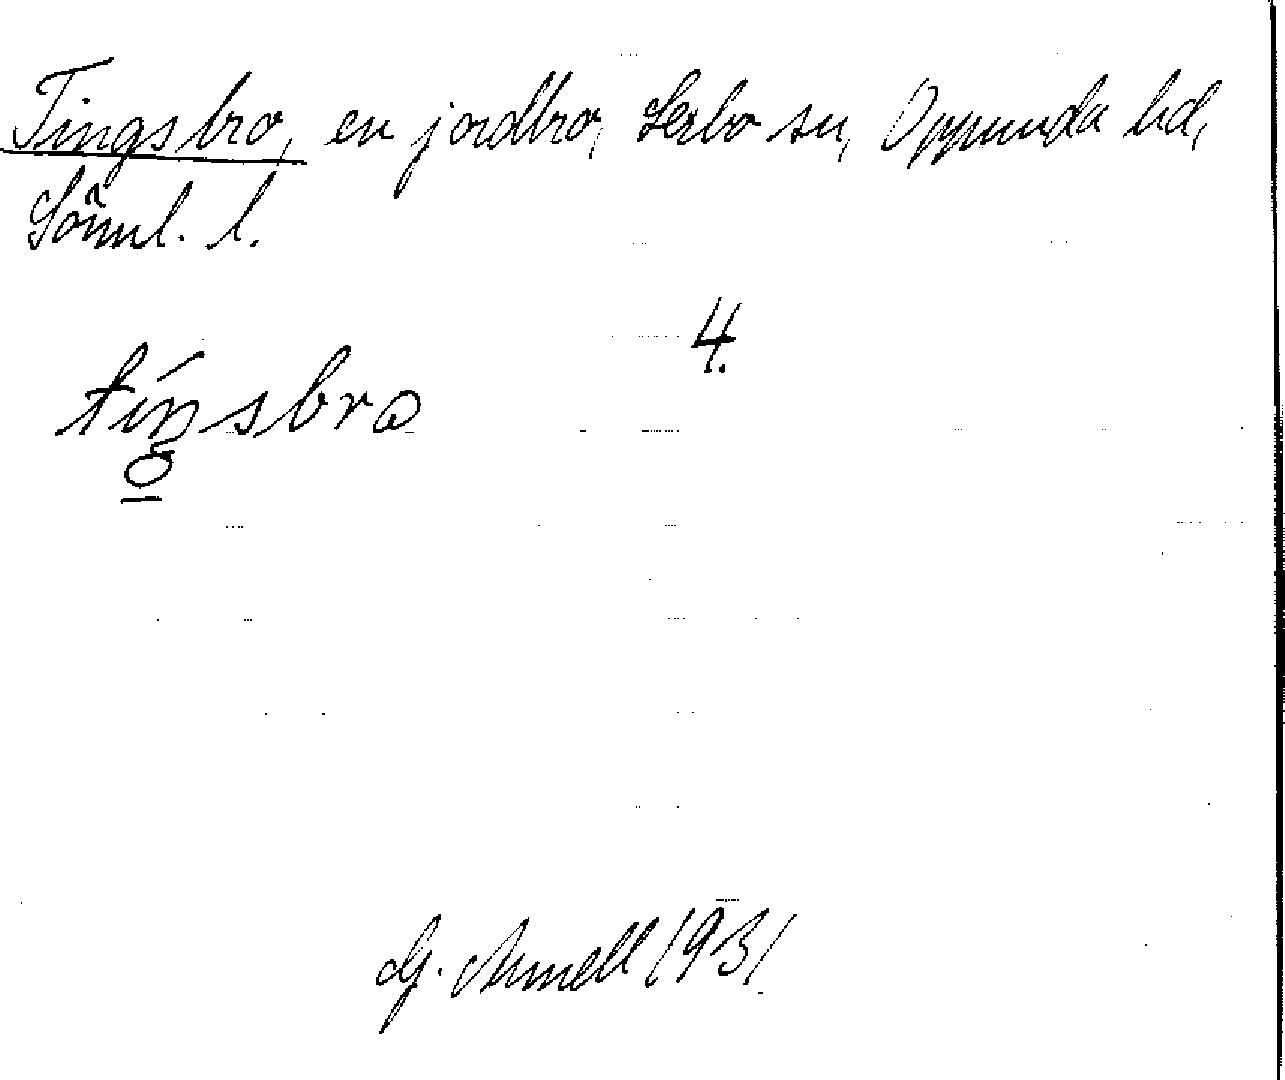 Tingsbro, en jordbro, Lerbo sn, Oppunda hd,
Söml. l.
4.
tíŋsbro
G. Armell 1931.